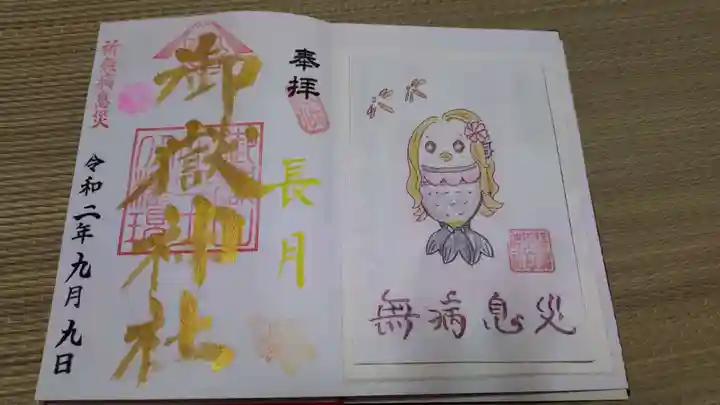 奉拝
長月
御嶽神社
祈無病息災
令和二年九月九日
無病息災